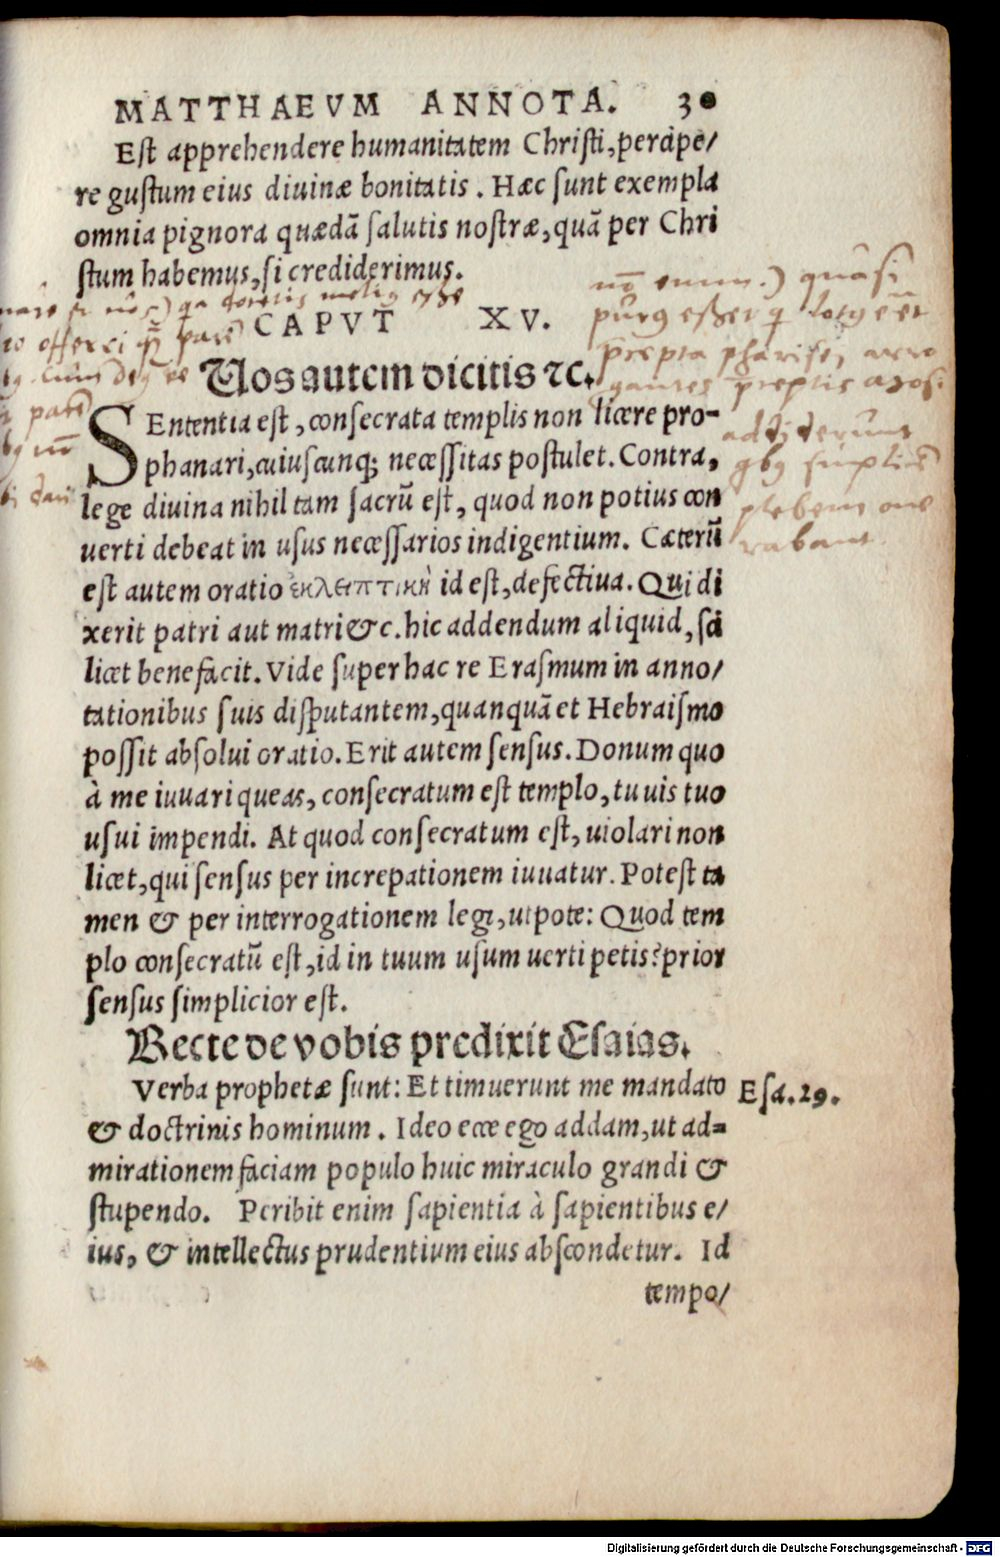 MATTHAEVM ANNOTA. 30
Est apprehendere humanitatem Christi, percipe/
re gustum eius diuinæ bonitatis. Hæc sunt exempla
omnia pignora quædā salutis nostræ, quā per Chri
stum habemus, si crediderimus.
CAPVT XV.
Uos autem dicitis ꝛc.
SEntentia est, consecrata templis non licere pro-
phanari, cuiuscunq; necessitas postulet. Contra,
lege diuina nihil tam sacrū est, quod non potius con
uerti debeat in usus necessarios indigentium. Cæterū
est autem oratio ἐκλειπτικὴ id est, defectiua. Qui di
xerit patri aut matri &c. hic addendum aliquid, sci
licet benefacit. Vide super hac re Erasmum in anno/
tationibus suis disputantem, quanquā et Hebraismo
possit absolui oratio. Erit autem sensus. Donum quo
à me iuuari queas, consecratum est templo, tu uis tuo
usui impendi. At quod consecratum est, uiolari non
licet, qui sensus per increpationem iuuatur. Potest ta
men & per interrogationem legi, utpote: Quod tem
plo consecratū est, id in tuum usum uerti petis? prior
sensus simplicior est.
Recte de vobis predixit Esaias.
Verba prophetæ sunt: Et timuerunt me mandato
Esa. 29.
& doctrinis hominum. Ideo ecce ego addam, ut ad=
mirationem faciam populo huic miraculo grandi &
stupendo. Peribit enim sapientia à sapientibus e/
ius, & intellectus prudentium eius abscondetur. Id
tempo/
quasi
pharisei
plebem
Digitalisierung gefördert durch die Deutsche Forschungsgemeinschaft - DFG